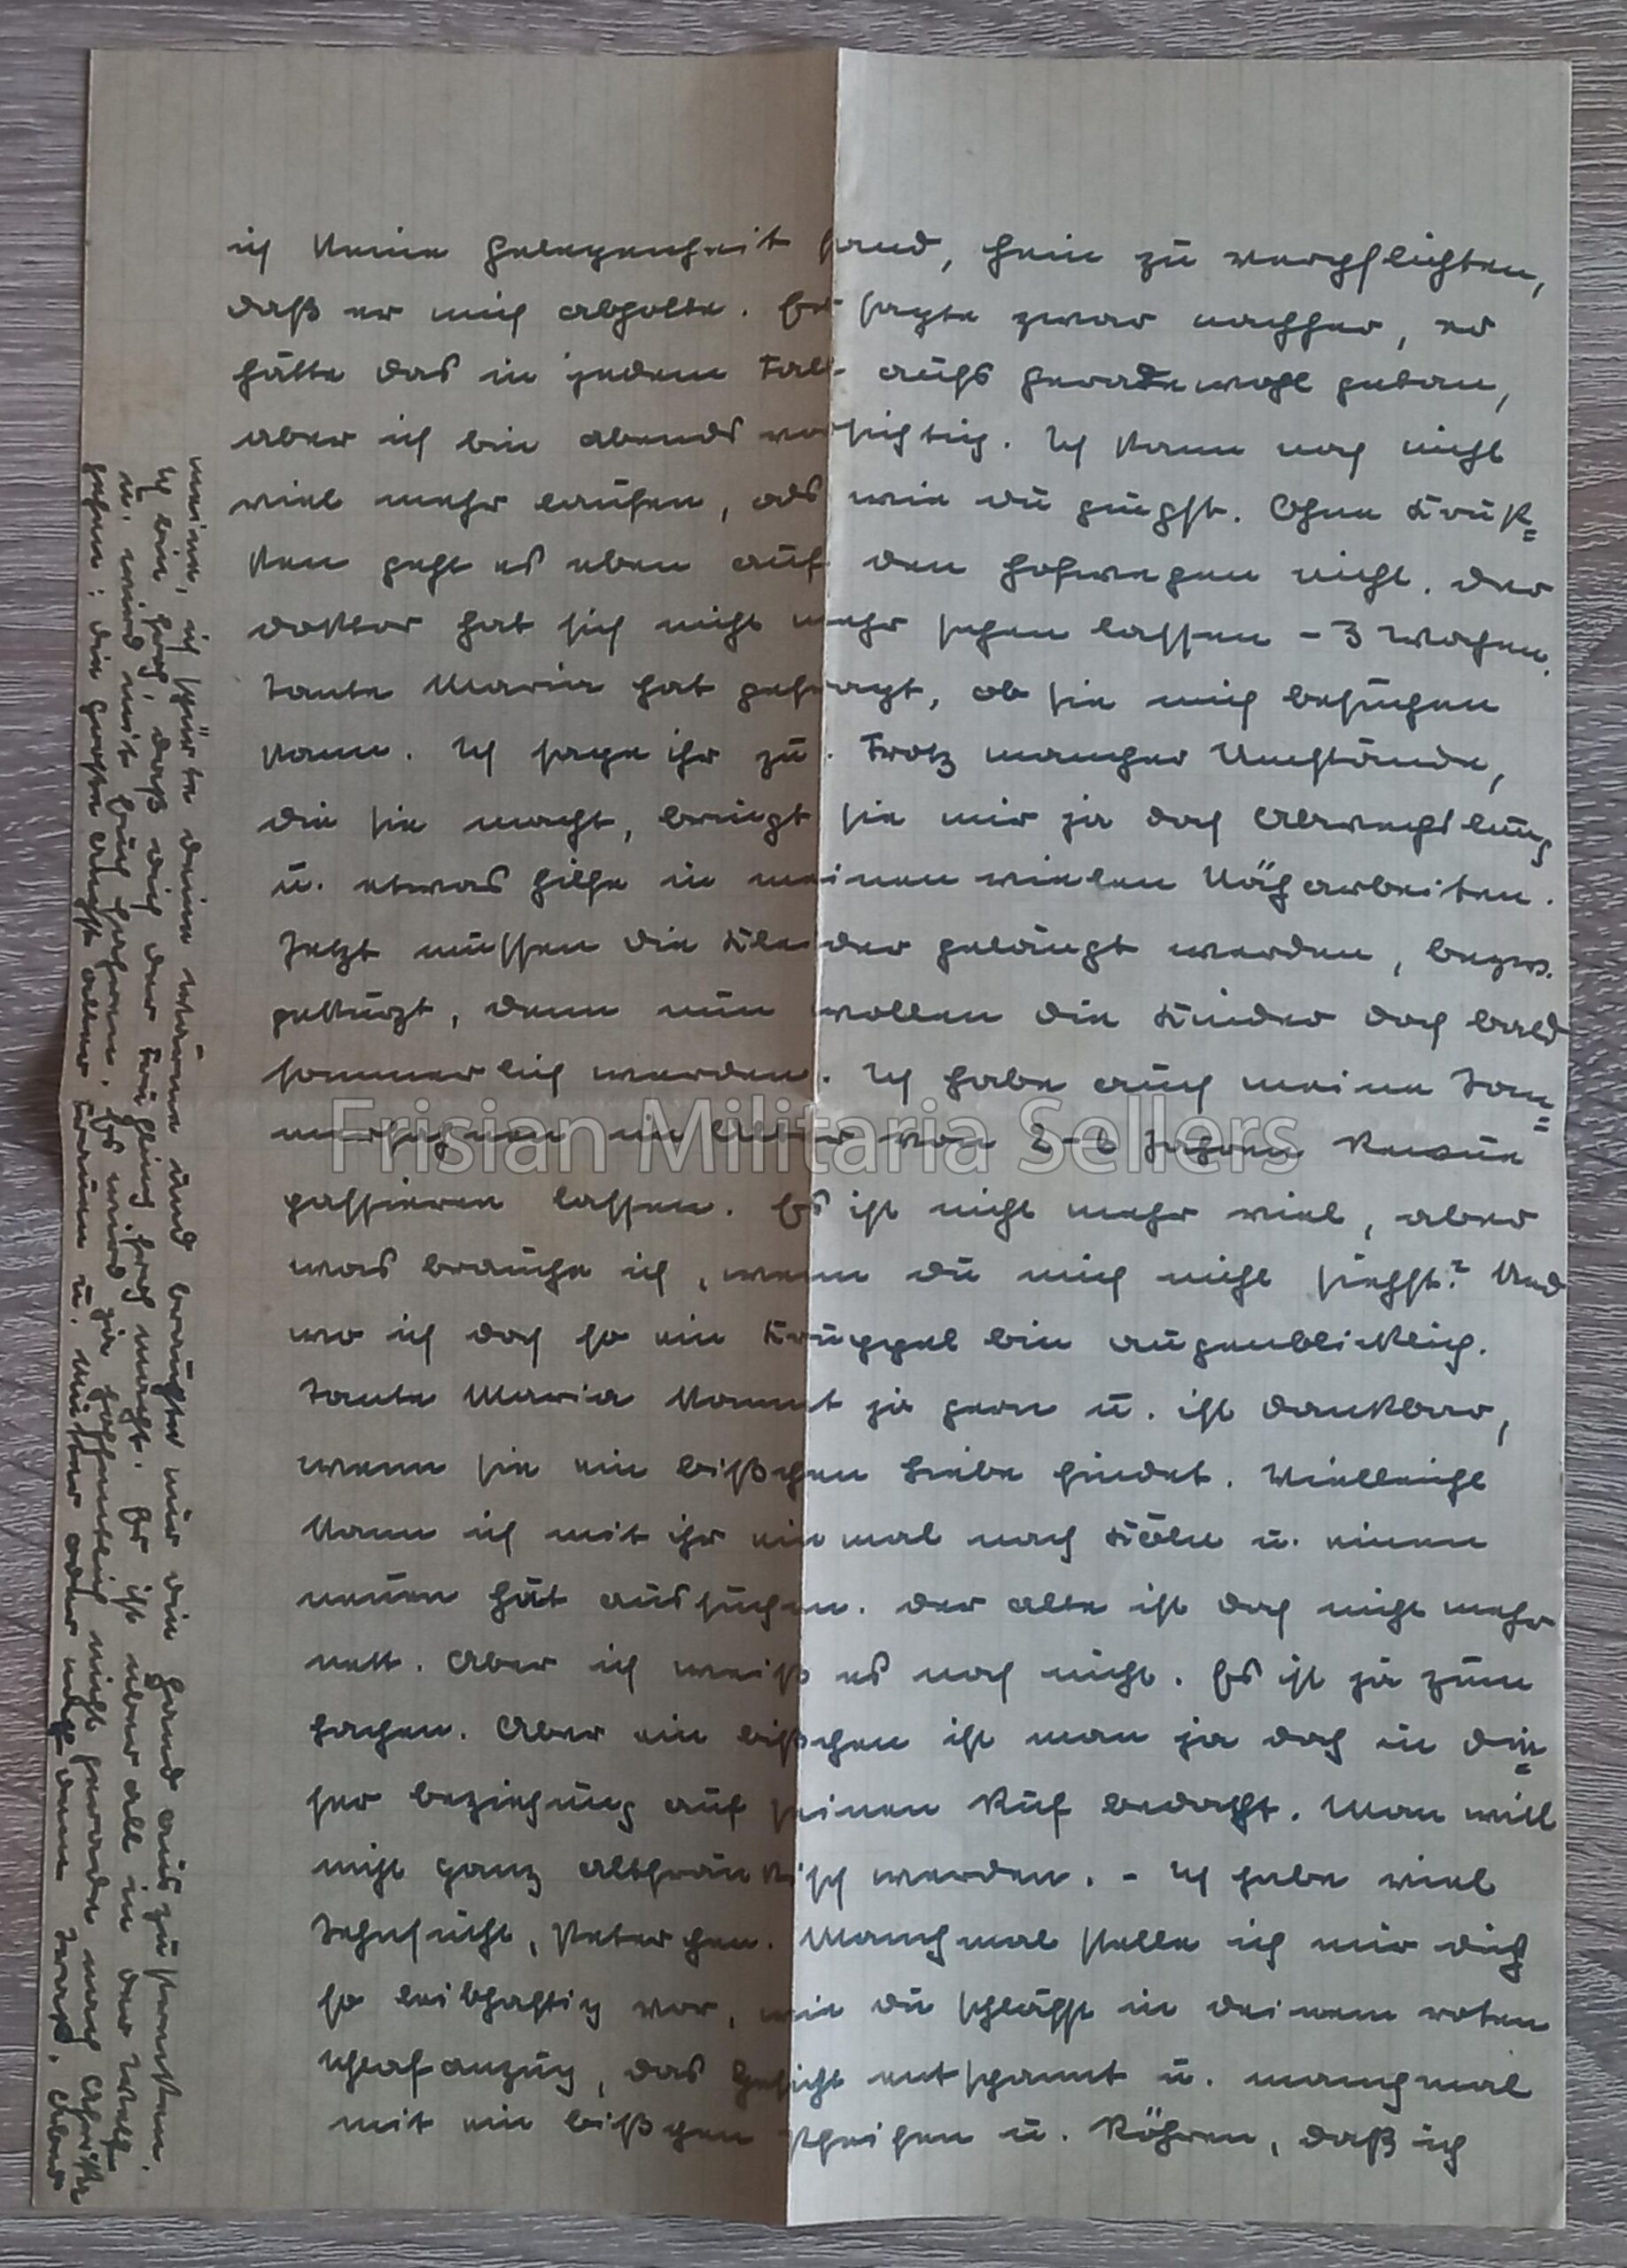 ich keine Gelegenheit fand, Hein zu verpflichten,
daß er mich abholte. Er sagte zwar nachher, er
hätte das in jedem Fall aufs Geradewohl getan,
aber ich bin abends vorsichtig. Ich kann noch nicht
viel mehr laufen, als wie du gingst. Ohne Krük=
ken geht es eben auf den Hofwegen nicht. Der
Doktor hat sich nicht mehr sehen lassen – 3 Wochen.
Tante Maria hat gefragt, ob sie mich besuchen
kann. Ich sage ihr zu. Trotz mancher Umstände,
die sie macht, bringt sie mir ja doch Abwechslung
u. etwas Hilfe in meinen vielen Näharbeiten.
Jetzt müssen die Kleider gelängt werden, bezw.
gekürzt, denn nun wollen die Kinder doch bald
sommerlich werden. Ich habe auch meine Som=
mersachen im Alter von 2-6 Jahren Revue
passieren lassen. Es ist nicht mehr viel, aber
was brauche ich, wenn du mich nicht siehst? Und
wo ich doch so ein Krüppel bin augenblicklich.
Tante Maria kommt ja gern u. ist dankbar,
wenn sie ein bißchen Liebe findet. Vielleicht
kann ich mit ihr einmal nach Köln u. einen
neuen Hut aussuchen. Der alte ist doch nicht mehr
nett. Aber ich weiß es noch nicht. Es ist ja zum
Lachen. Aber ein bißchen ist man ja doch in die=
ser Beziehung auf seinen Ruf bedacht. Man will
nicht ganz altfränkisch werden. – Ich habe viel
Sehnsucht, Peterchen. Manchmal stelle ich mir dich
so leibhaftig vor, wie du schläfst in deinem roten
Schlafanzug, das Gesicht entspannt u. manchmal
mit ein bißchen Pfeifen u. Röhren, daß ich
meine, ich spürte deine Wärme und brauchte nur die Hand auszustrecken.
Ich bin froh, daß dich der Frühling froh macht. Er ist überall in der Welt
u. wird mit Euch fahren. Es wird ja hoffentlich nicht gerade nach Afrika
gehen: die große Angst aller Frauen u. Mütter oder noch dem Iraß. Aber